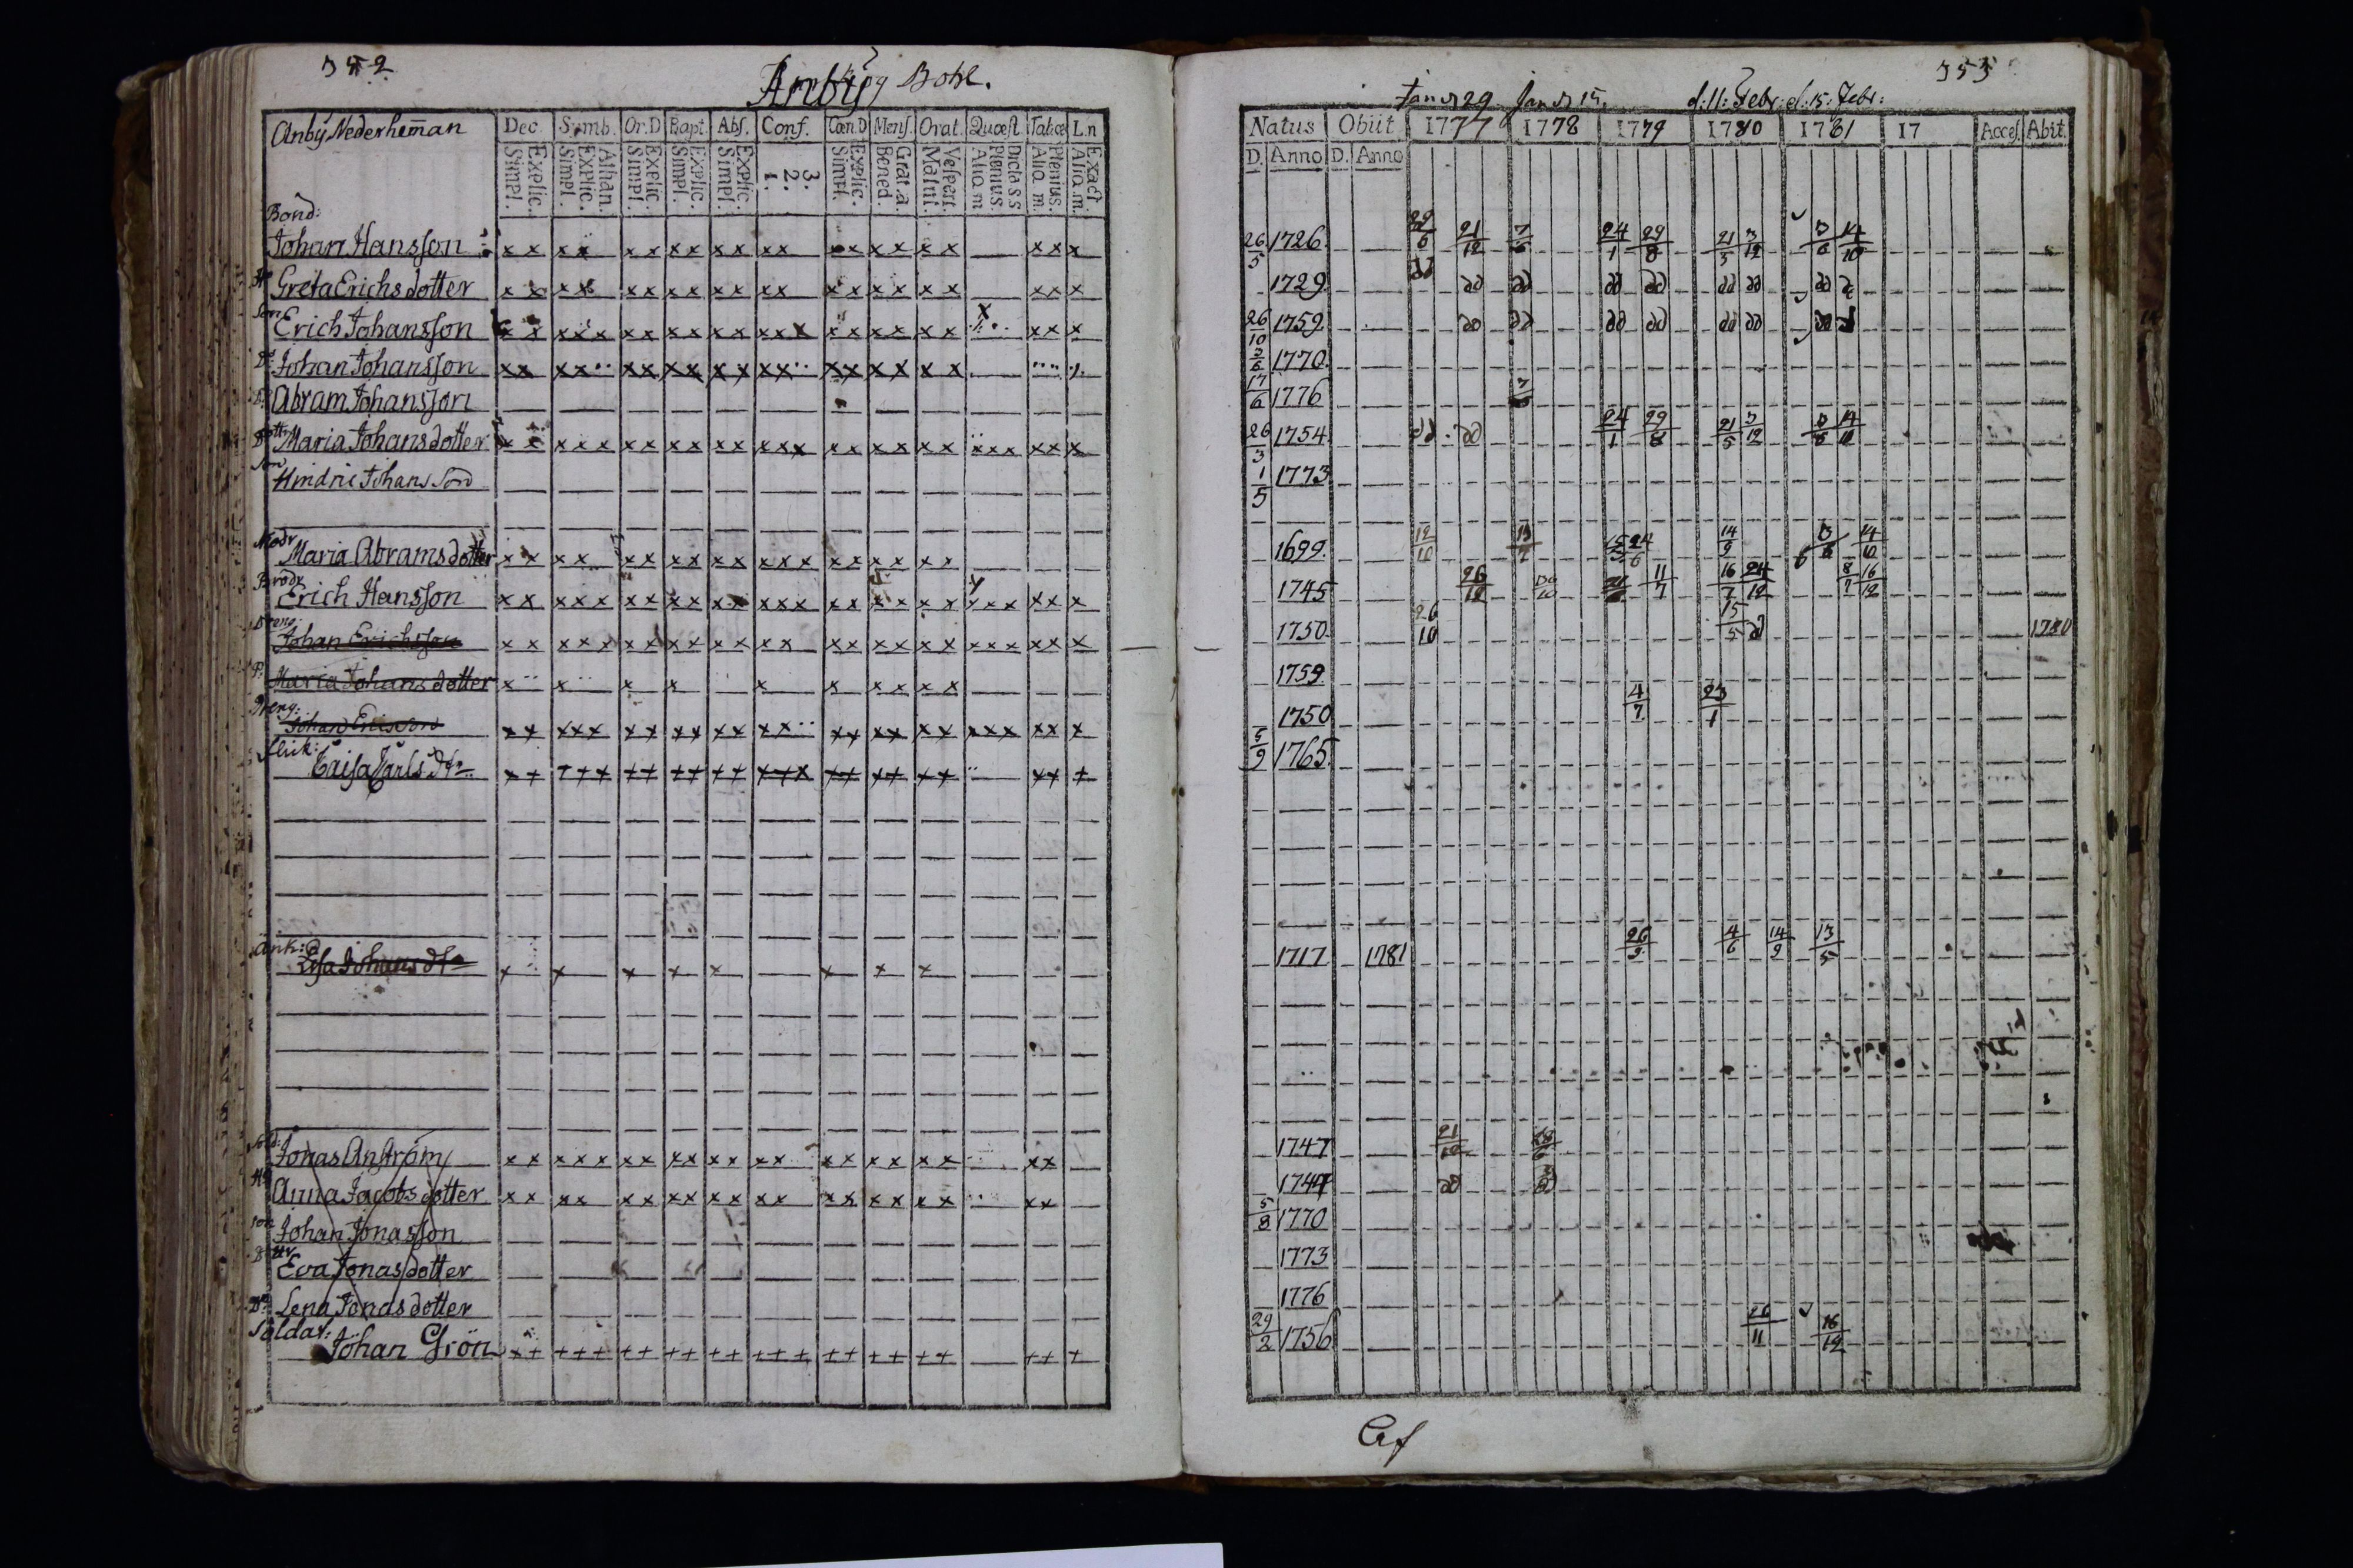 352
Anby Bohl.
Anby Nederheman
Dec. Symb. Or.D Bapt. Abs. Conf. Cœn.D Mens. Orat. Quæst. Tabœ L.n
Simpl. Explic. Simpl. Explic. Athan. Simpl. Explic. Simpl. Explic. Simpl. Explic. 1. 2. 3. Simpl. Explic. Bened. Grat.a. Matut. Vespert. Aliq m Plenius. Dicta S S Aliq m. Plenius. Aliq m. Exact.
Bond:
Johan Hansson x x x x x x x x x x x x x x x x x x x x x
H Greta Erichsdotter x x x x x x x x x x x x x x x x x x x x x
Son Erich Johansson x x x x x x x x x x x x x x x x x x x x x x x x
Do Johan Johansson x x x x x x x x x x x x x x x x x x
Do Abram Johansson
Dottr Maria Johansdotter x x x x x x x x x x x x x x x x x x x x x x x x x x
Son Hindric Johansson
Modr Maria Abramsdotter x x x x x x x x x x x x x x x x x x x
Brodr Erich Hansson x x x x x x x x x x x x x x x x x x x x x x x x x x
Dreng: Johan Erichsson x x x x x x x x x x x x x x x x x x x x x x x x x
P. Maria Johansdotter x x x x x x x x x x
Dreng: Johan Ericsson x x x x x x x x x x x x x x x x x x x x x x x x x
flick: Caisa Carls dtr + + + + + + + + + + + + + + x + + + + + + + + +
Enk: Lisa Johans dtr x x x x x x x x
Sold: Jonas Anström x x x x x x x x x x x x x x x x x x x x x
H Anna Jacobsdotter x x x x x x x x x x x x x x x x x x x x
son Johan Jonasson
Dottr Eva Jonasdotter
Do Lena Jonasdotter
Soldat: Johan Grön + + + + + + + + + + + + + + + + + + + + + + + +
353
Jan d 29 Jan d 15. d: 11: Febr: d: 15: Febr:
Natus Obiit 1777 1778 1779 1780 1781 17 Acces. Abit.
D. Anno D. Anno
26/5 1726 29/6 21/12 7/6 24/1 29/8 21/5 3/12 3/6 14/10
1729 dd dd dd dd dd dd dd dd
26/10 1759 dd dd dd dd dd dd
1770
17/6 1776
26/3 1754 dd dd 24/1 29/8 21/5 3/12 14
1/5 1773
1699 12/10 14/9 14/10
1745 26/12 11/7 16/7 24/12 8/7 16/12
1750 26/10 15/5 d 1780
1759
1750 4/7 23/1
5/9 1765
1717 1781 26/9 4/6 14/9 13/5
1747 21
1744 dd dd
5/8 1770
1773
1776
29/2 1756 26/11 16/12
Cf